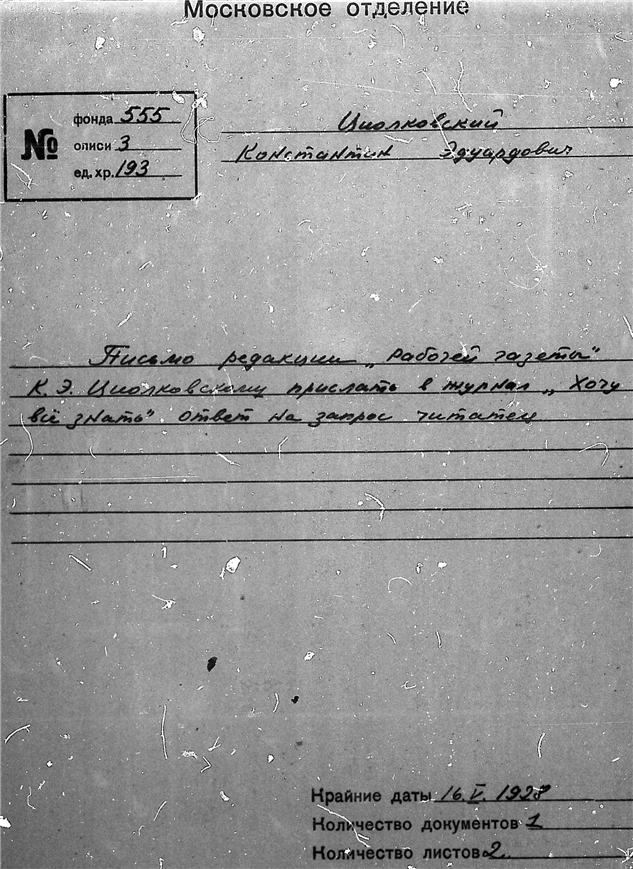 Московское отделение
№
фонда 555
описи 3
ед. хр. 193
Циолковский
Константин Эдуардович
Письмо редакции „Рабочей газеты"
К. Э. Циолковскому прислать в журнал „Хочу
всё знать" ответ на запрос читателя
Крайние даты 16.V.1928
Количество документов 1
Количество листов 2